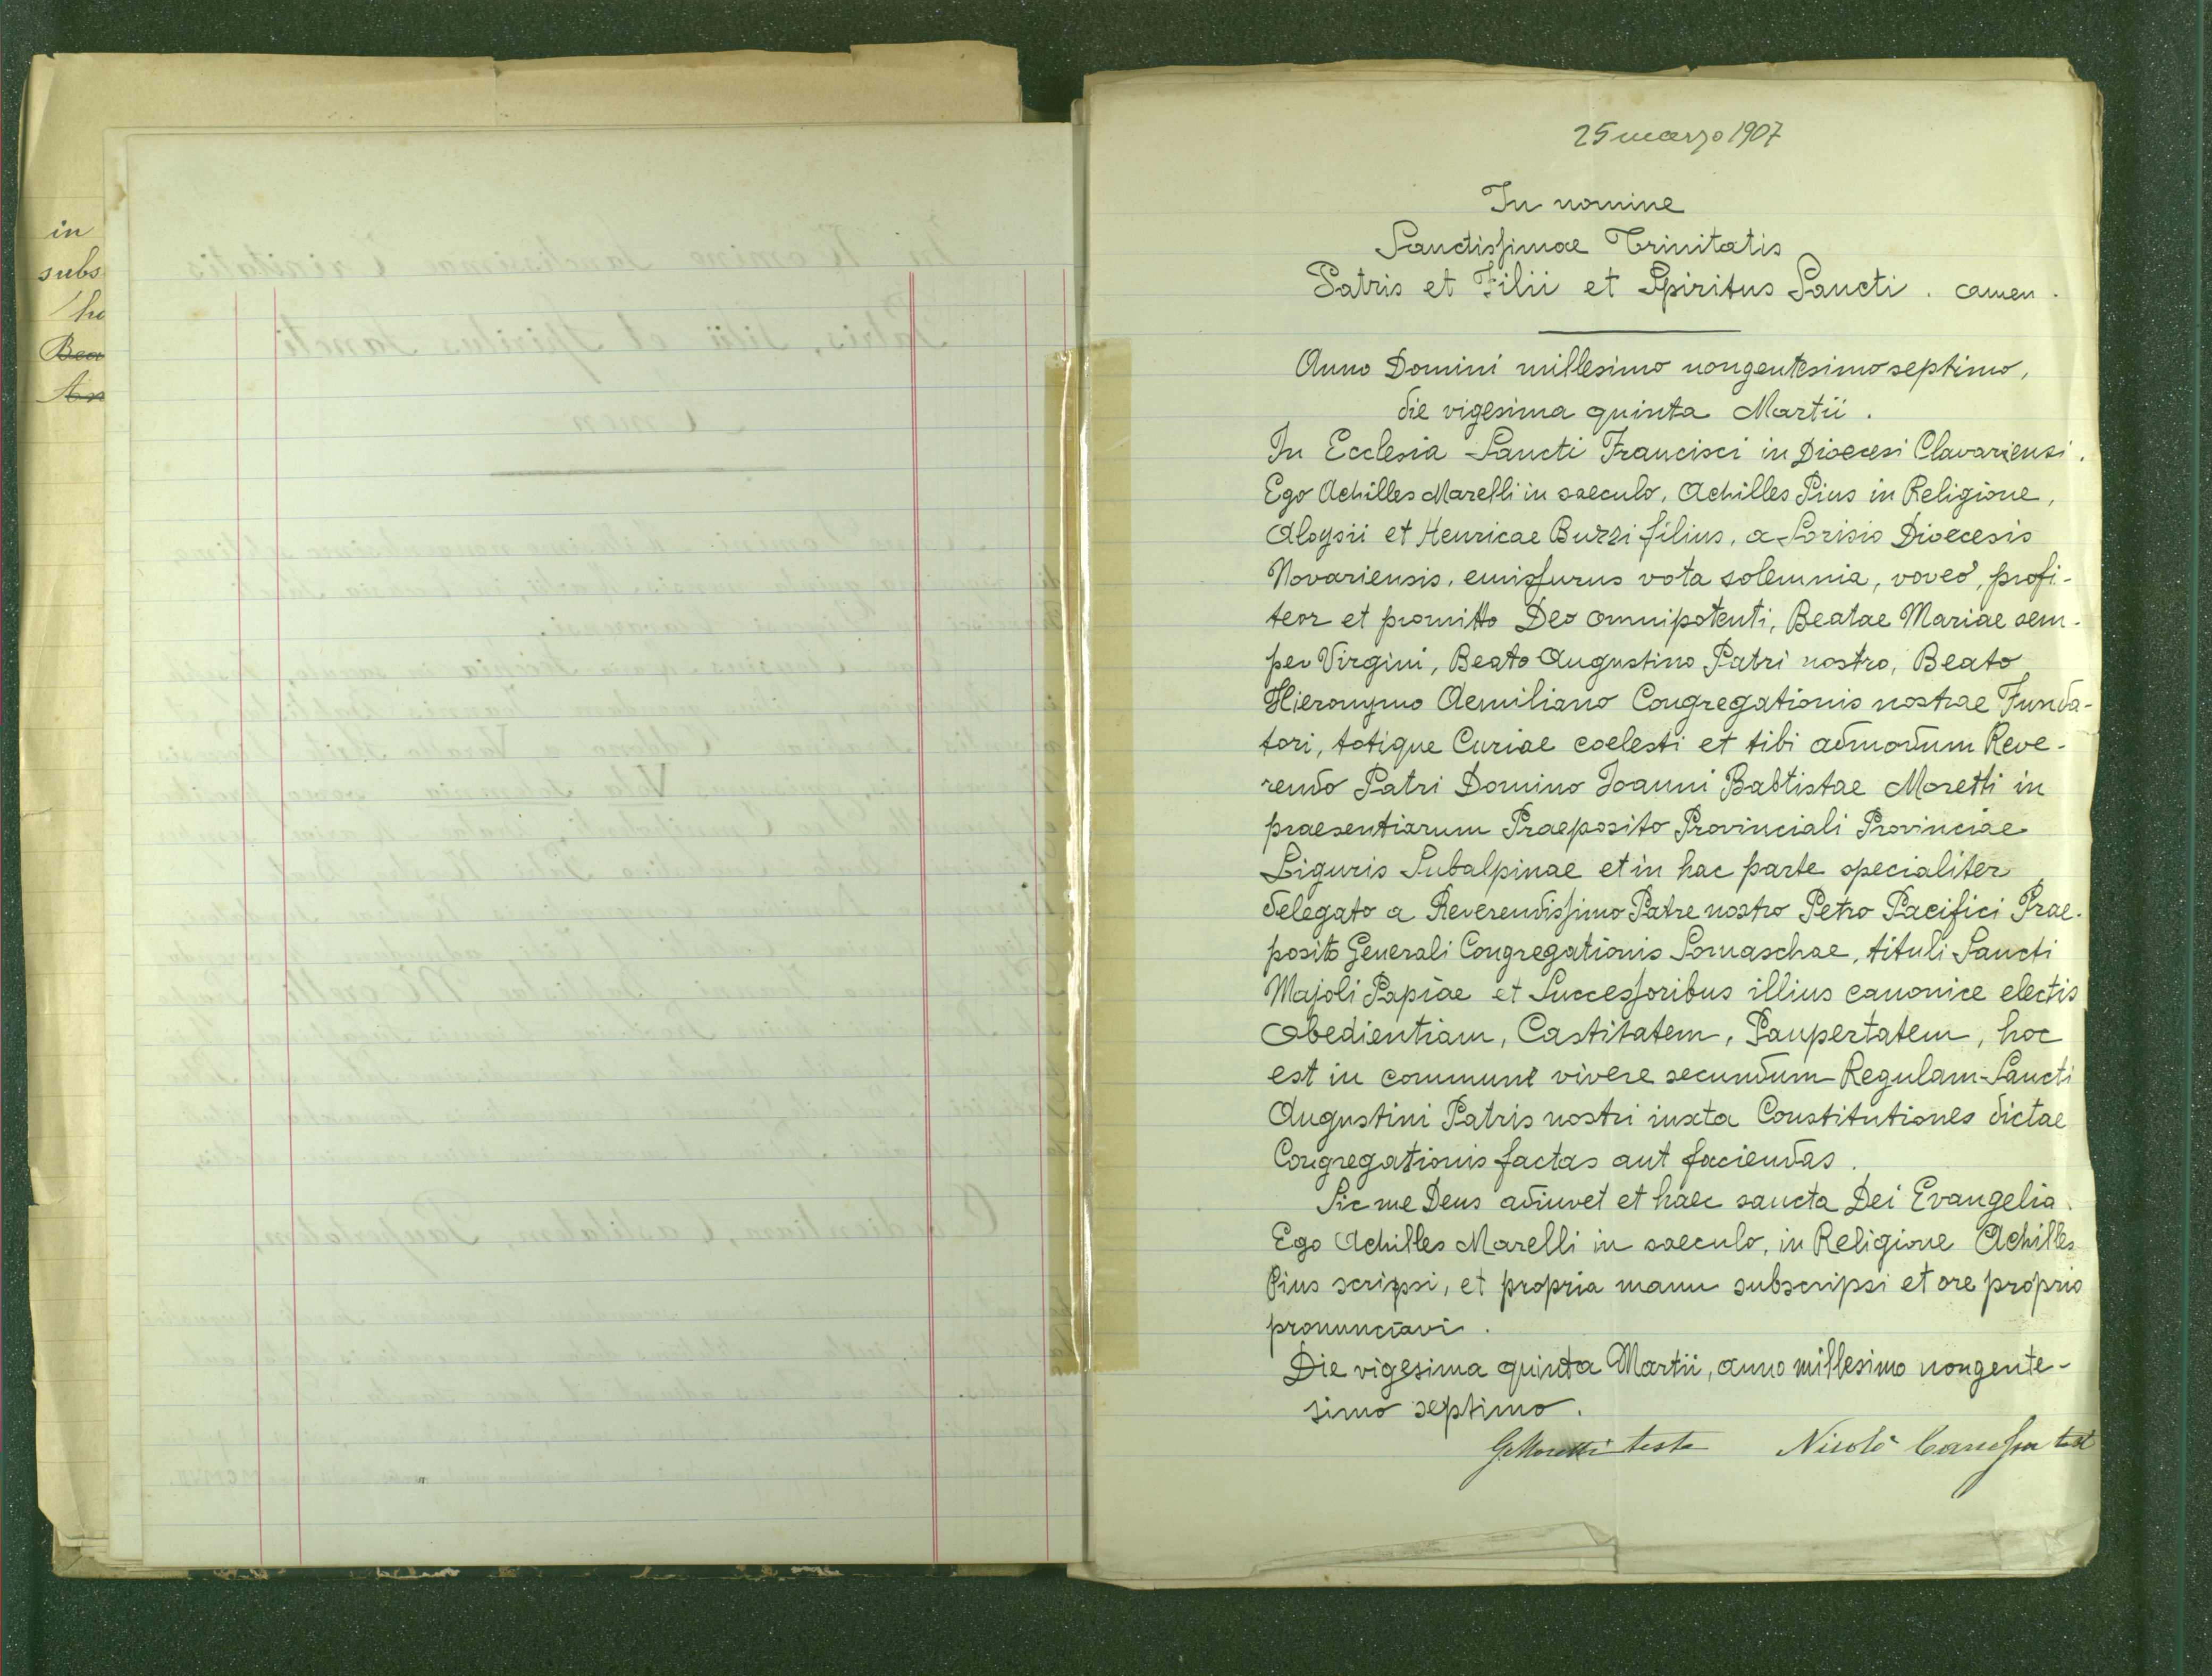 in
subs
Bea
An
25 marzo 1907
In nomine
Sanctissimae Trinitatis
Patris et Filii et Spiritus Sancti. amen.
Anno Domini millesimo nongentesimo septimo,
die vigesima quinta Martii.
In Ecclesia Sancti Francisci in Dioecesi Clavariensi.
Ego Achilles Marelli in saeculo, Achilles Pius in Religione,
Aloysii et Henricae Buzzi filius, a Sorisio Dioecesis
Novariensis, emissurus vota solemnia, voveo, profi-
teor et promitto Deo omnipotenti, Beatae Mariae sem-
per Virgini, Beato Augustino Patri nostro, Beato
Hieronymo Aemiliano Congregationis nostrae Funda-
tori, totique Curiae coelesti et tibi admodum Reve-
rendo Patri Domino Joanni Babtistae Moretti in
praesentiarum Praeposito Provinciali Provinciae
Liguris Subalpinae et in hac parte specialiter
delegato a Reverendissimo Patre nostro Petro Pacifici Prae-
posito Generali Congregationis Somaschae, tituli Sancti
Majoli Papiae et Successoribus illius canonice electis
Obedientiam, Castitatem, Paupertatem, hoc
est in communi vivere secundum Regulam Sancti
Augustini Patris nostri iuxta Constitutiones dictae
Congregationis factas aut faciendas.
Sic me Deus adiuvet et haec sancta Dei Evangelia.
Ego Achilles Marelli in saeculo, in Religione Achilles
Pius scripsi, et propria manu subscripsi et ore proprio
pronunciavi.
Die vigesima quinta Martii, anno millesimo nongente-
simo septimo.
G. Moretti teste Nicolò